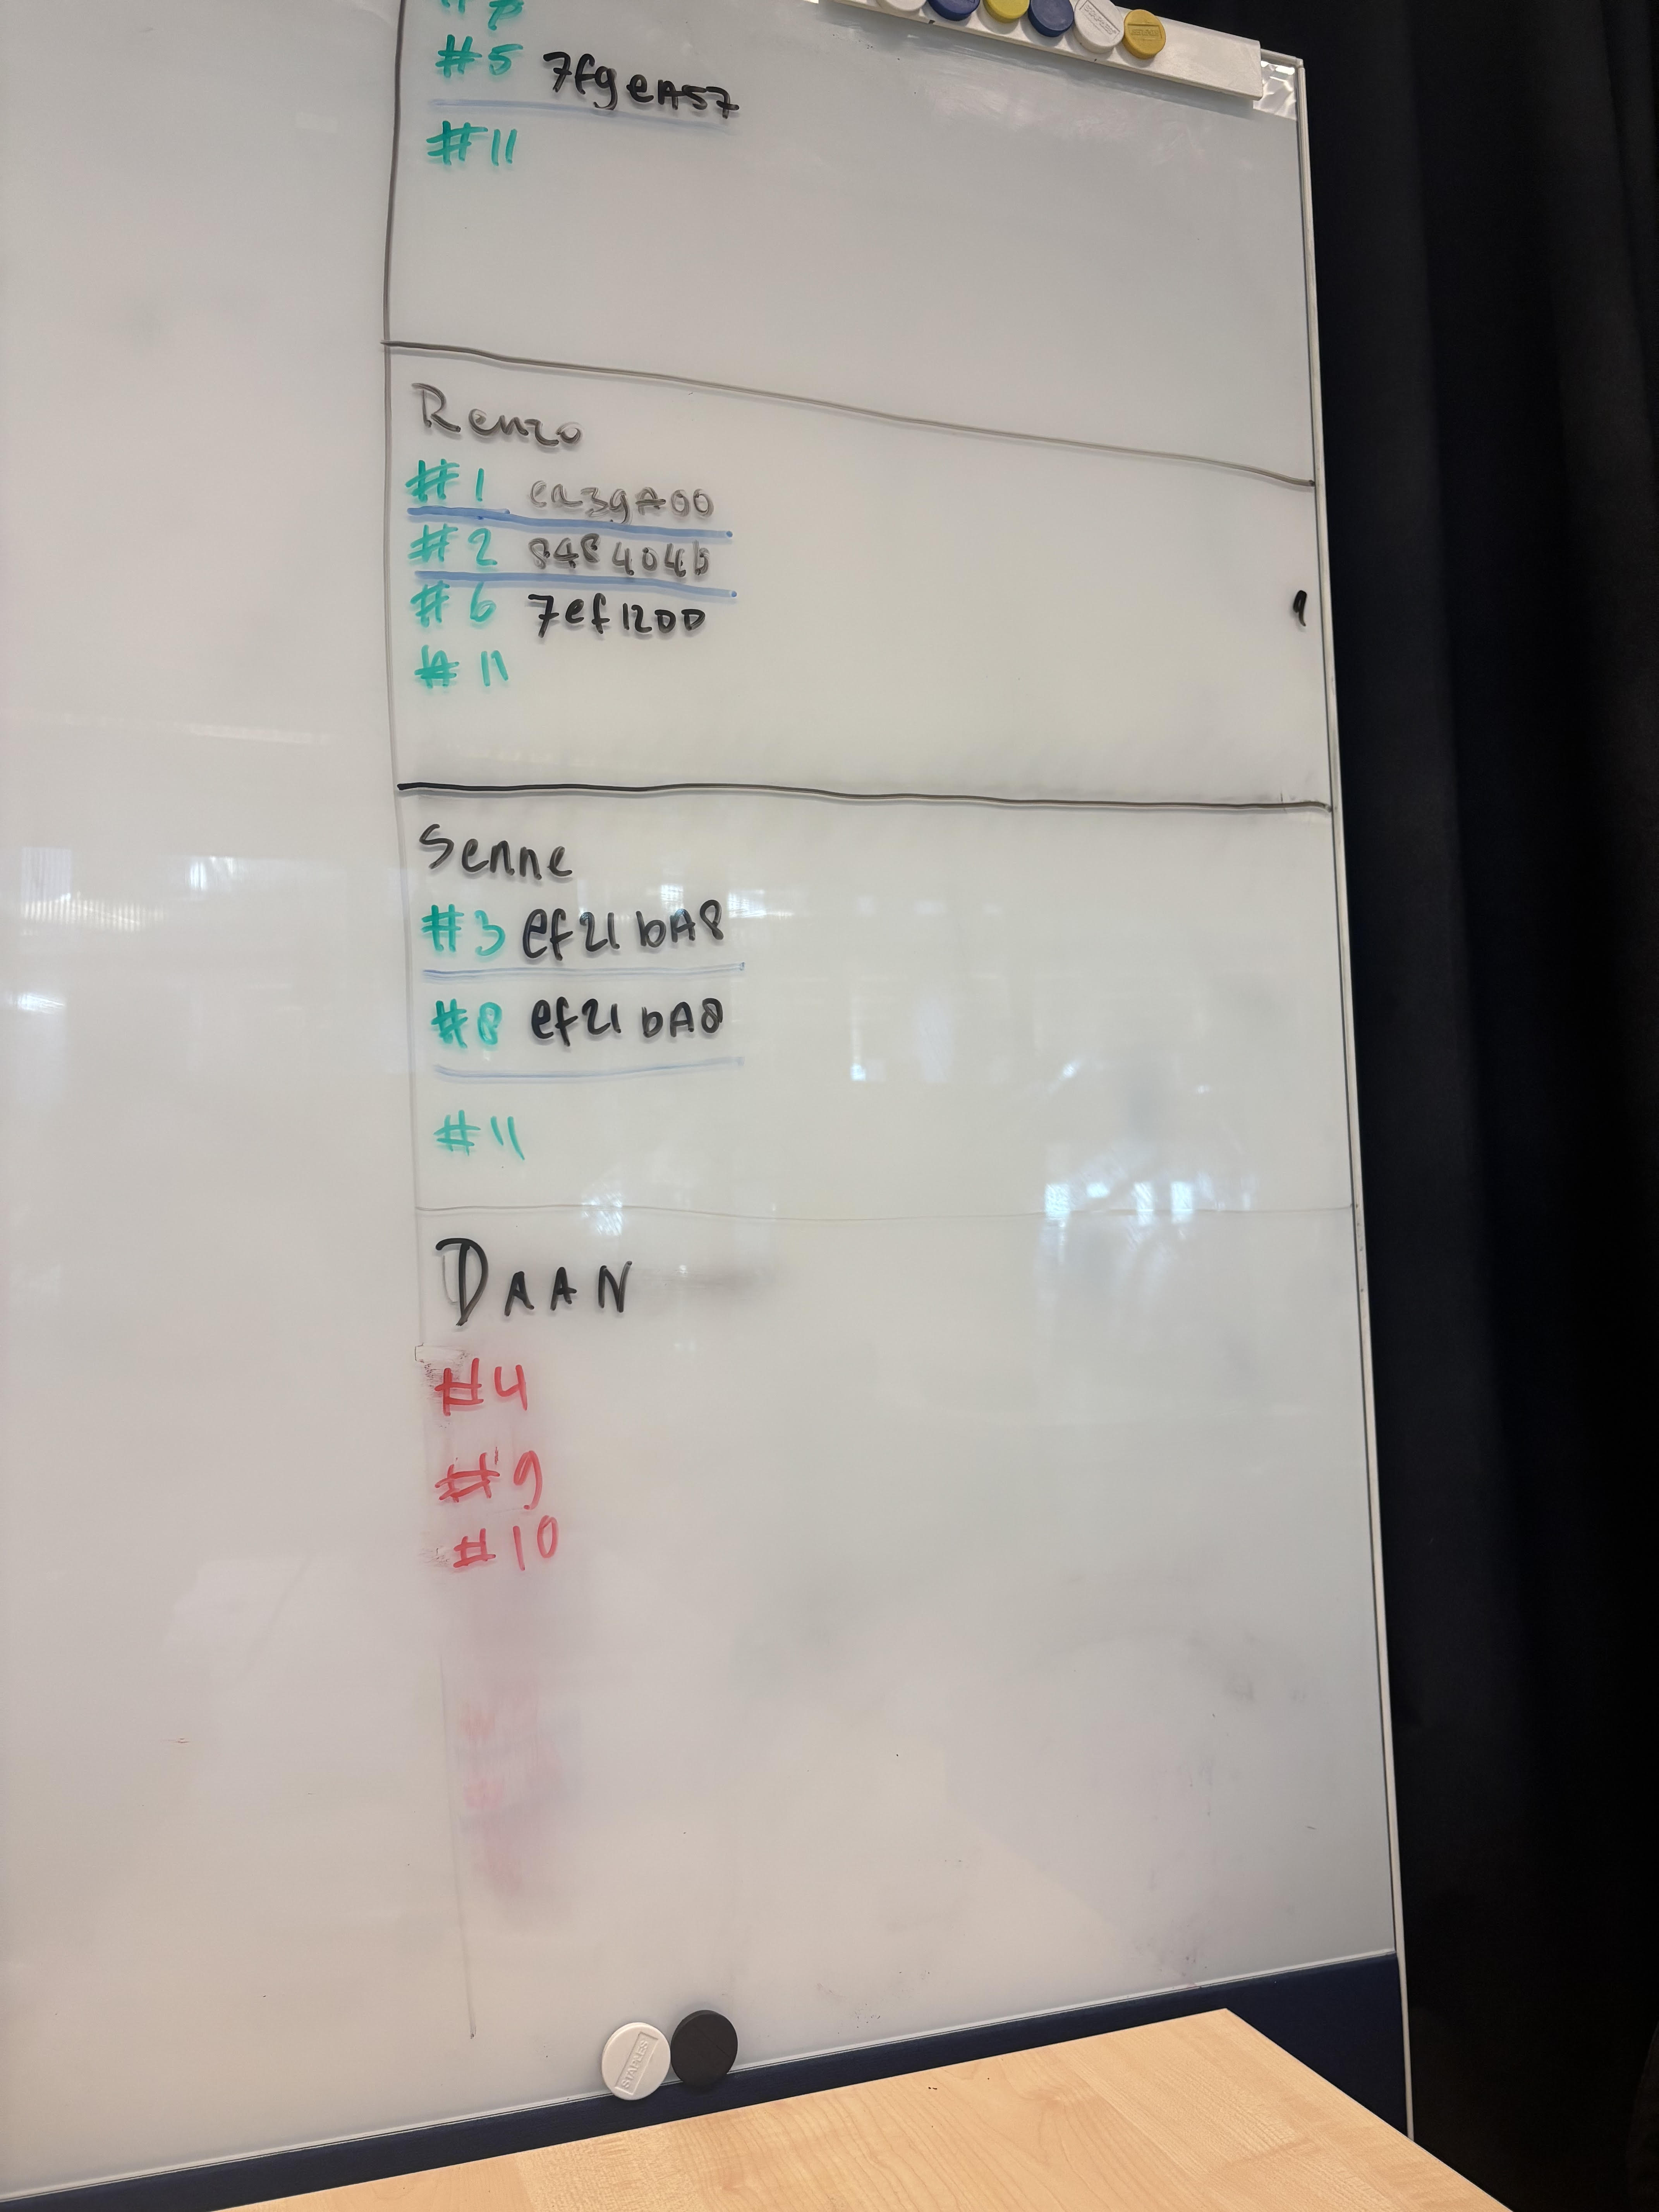 #5 7fgeA57
#11
Renzo
#1 ea39A00
#2 848404b
#6 7ef1200
#11
Senne
#3 ef21bA8
#8 ef21bA8
#11
DAAN
#4
#9
#10
STAPLES